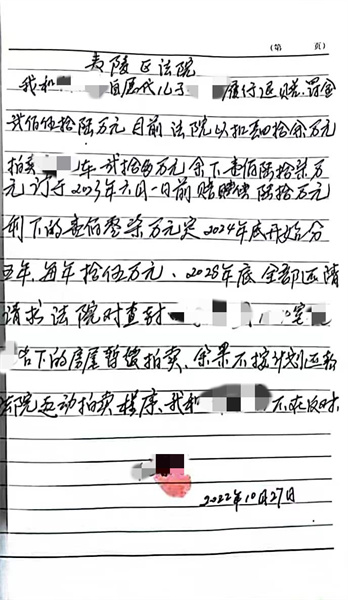 (第 页)
夷陵区法院
我和 自愿代儿子 履行退赔、罚金
贰佰伍拾陆万元 目前法院以扣划拾余万元
拍卖 车 贰拾 万元 余下壹佰陆拾柒万
元 订于2023年六月一日前赔 陆拾万元
剩下的壹佰零柒万元 2024年底开始分
五年,每年拾伍万元、2028年底全部还清
请求法院对查封
名下的房屋暂缓拍卖、如果不按计划还款
法院启动拍卖程序、我和 不反对.
2022年10月27日